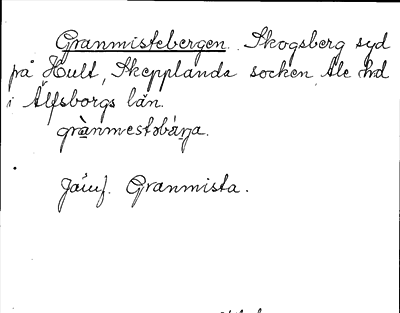 Granmistebergen. Skogsberg syd
på Hult, Skepplanda socken Ale hd
i Älfsborgs län.
grànmestəbárja.
Jämf. Granmista.